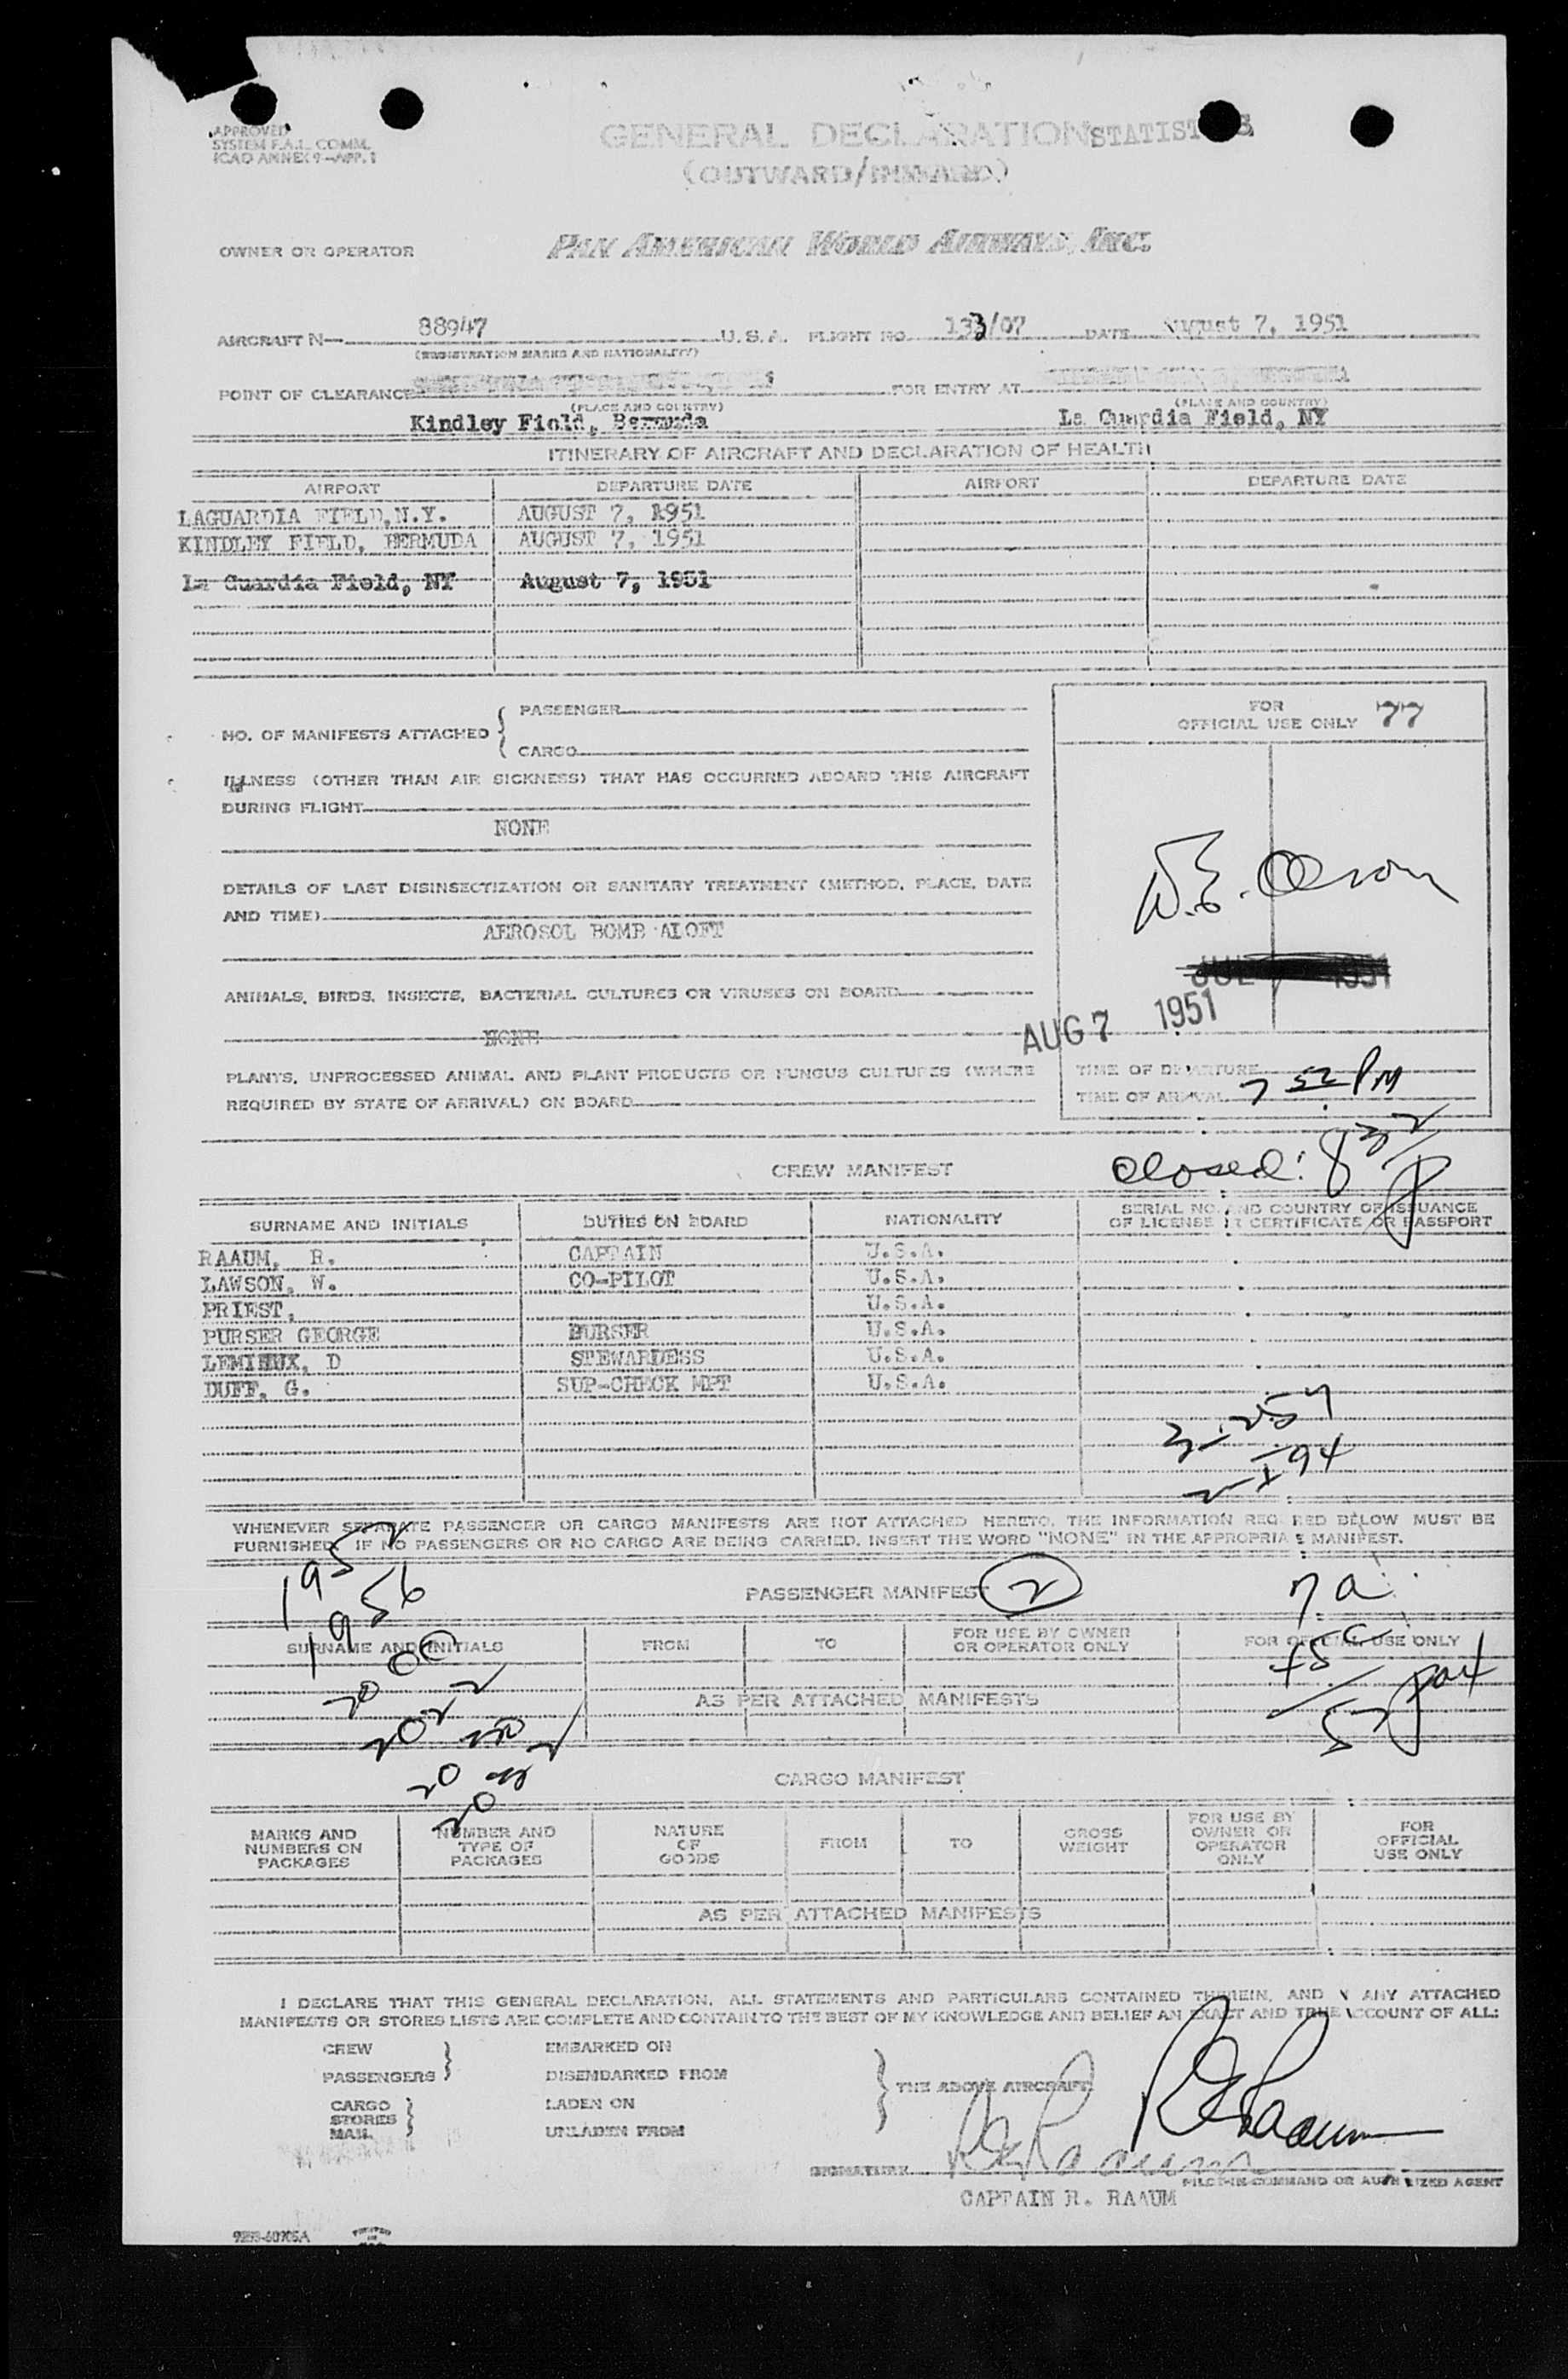 APPROVED
SYSTEM F.A.L. COMM.
ICAO ANNEX 9-APP. 1
GENERAL DECLARATION
(OUTWARD/INWARD)
OWNER OR OPERATOR PAN AMERICAN WORLD AIRWAYS, INC.
AIRCRAFT N— 88947 U.S.A. FLIGHT NO. 133/07 DATE August 7, 1951
(REGISTRATION MARKS AND NATIONALITY)
POINT OF CLEARANCE FOR ENTRY AT
(PLACE AND COUNTRY) (PLACE AND COUNTRY)
Kindley Field, Bermuda La Guardia Field, NY
ITINERARY OF AIRCRAFT AND DECLARATION OF HEALTH
AIRPORT DEPARTURE DATE AIRPORT DEPARTURE DATE
LAGUARDIA FIELD,N.Y. AUGUST 7, 1951
KINDLEY FIELD, BERMUDA AUGUST 7, 1951
La Guardia Field, NY August 7, 1951
NO. OF MANIFESTS ATTACHED { PASSENGER
CARGO
FOR
OFFICIAL USE ONLY 77
ILLNESS (OTHER THAN AIR SICKNESS) THAT HAS OCCURRED ABOARD THIS AIRCRAFT
DURING FLIGHT
NONE
DETAILS OF LAST DISINSECTIZATION OR SANITARY TREATMENT (METHOD, PLACE, DATE
AND TIME)
AEROSOL BOMB ALOFT
ANIMALS, BIRDS, INSECTS, BACTERIAL CULTURES OR VIRUSES ON BOARD
NONE
AUG 7 1951
PLANTS, UNPROCESSED ANIMAL AND PLANT PRODUCTS OR FUNGUS CULTURES (WHERE
REQUIRED BY STATE OF ARRIVAL) ON BOARD
TIME OF DEPARTURE
TIME OF ARRIVAL 7 52 PM
closed: 8 32 P
CREW MANIFEST
SURNAME AND INITIALS DUTIES ON BOARD NATIONALITY SERIAL NO. AND COUNTRY OF ISSUANCE
OF LICENSE OR CERTIFICATE OR PASSPORT
RAAUM, R. CAPTAIN U.S.A.
LAWSON, W. CO-PILOT U.S.A.
PRIEST, U.S.A.
PURSER GEORGE PURSER U.S.A.
LEMIEUX, D STEWARDESS U.S.A.
DUFF, G. SUP-CHECK MPT U.S.A.
WHENEVER SEPARATE PASSENGER OR CARGO MANIFESTS ARE NOT ATTACHED HERETO, THE INFORMATION REQUIRED BELOW MUST BE
FURNISHED. IF NO PASSENGERS OR NO CARGO ARE BEING CARRIED, INSERT THE WORD "NONE" IN THE APPROPRIATE MANIFEST.
1952
1956
PASSENGER MANIFEST 2
SURNAME AND INITIALS FROM TO FOR USE BY OWNER
OR OPERATOR ONLY FOR OFFICIAL USE ONLY
2000
2022
AS PER ATTACHED MANIFESTS
CARGO MANIFEST
MARKS AND
NUMBERS ON
PACKAGES
NUMBER AND
TYPE OF
PACKAGES
NATURE
OF
GOODS
FROM
TO
GROSS
WEIGHT
FOR USE BY
OWNER OR
OPERATOR
ONLY
FOR
OFFICIAL
USE ONLY
AS PER ATTACHED MANIFESTS
I DECLARE THAT THIS GENERAL DECLARATION, ALL STATEMENTS AND PARTICULARS CONTAINED THEREIN, AND IN ANY ATTACHED
MANIFESTS OR STORES LISTS ARE COMPLETE AND CONTAIN TO THE BEST OF MY KNOWLEDGE AND BELIEF AN EXACT AND TRUE ACCOUNT OF ALL:
CREW
PASSENGERS }
EMBARKED ON
DISEMBARKED FROM
CARGO
STORES
MAIL }
LADEN ON
UNLADEN FROM
} THE ABOVE AIRCRAFT
SIGNATURE
PILOT-IN-COMMAND OR AUTHORIZED AGENT
CAPTAIN R. RAAUM